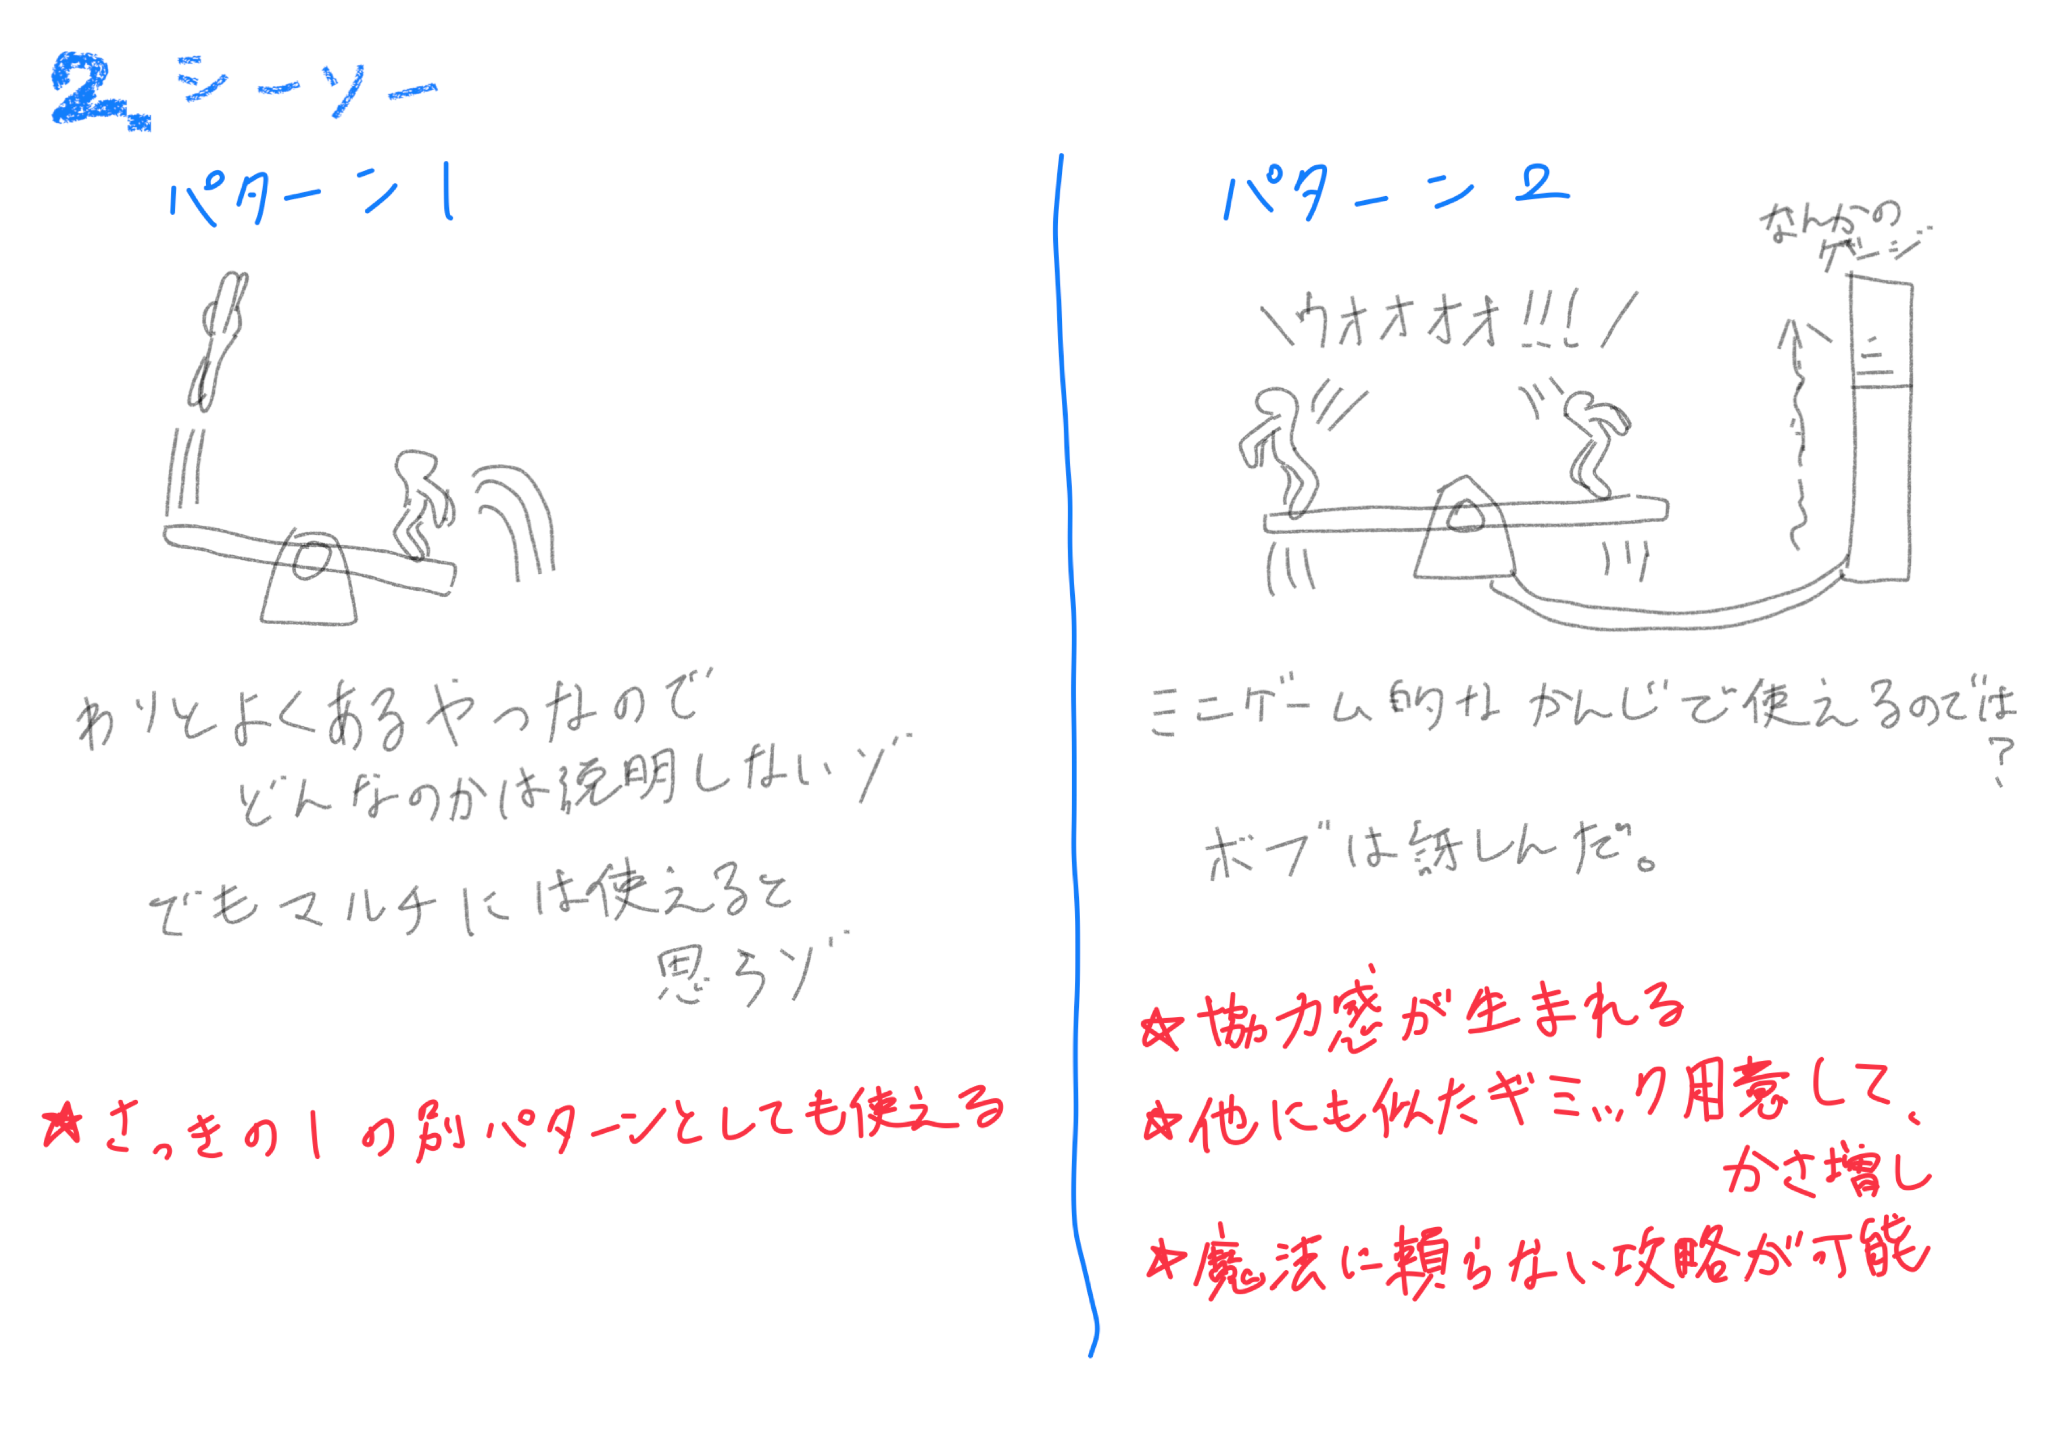 2.シーソー
パターン1
わりとよくあるやつなので
どんなのかは説明しないゾ
でもマルチには使えると
思うゾ
★さっきの1の別パターンとしても使える
パターン2
なんかの
ゲージ
\ウオオオオ!!!/
ミニゲーム的なかんじで使えるのでは
?
ボブは訝しんだ。
☆協力感が生まれる
☆他にも似たギミック用意して、
かさ増し
☆魔法に頼らない攻略が可能